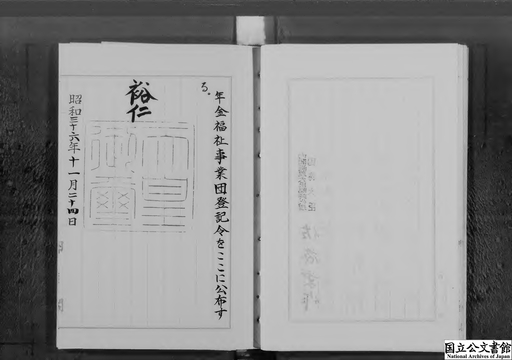 年金福祉事業団登記令をここに公布す
る。
裕仁
天皇
御璽
昭和三十六年十一月二十四日
国立公文書館
National Archives of Japan